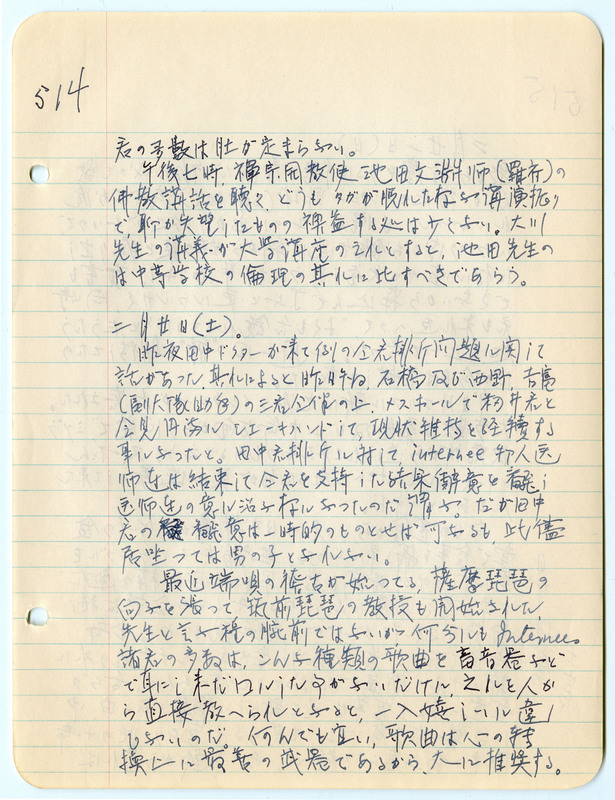 514
君の多数は肚が定まらない。
午後七時、禅宗開教使 池田文 師(羅府)の
佛教講話を聴く、どうもタガが恨れた 講演振り
で、聊か失望したものの裨益する処は少くない。大川
先生の講義が大学講座のそれとすると、池田先生の
は中等学校の倫理の其れに比すべきであらう。
二月廿日(土)。
昨夜田中ドクターが来て例の 君排斥問題に関して
話があつた、其れによると昨 、石橋及び西野、
(副大隊助 )の三君 の上、メスホールで 井君と
会見円満にシエーキハンドして、現状維持を継続する
事になつたと。田中君排斥に対して internee 邦人医
師連は結束して 君を支持した結果 意を翻し
医師連の意に沿ふ なつたのだと謂ふ、だが田中
君の 意は一時的のものとせば可なるも、此儘
居坐つては男の子となれない。
最近端唄の稽古が始つてる、薩摩琵琶の
向ふを張つて筑前琵琶の教授も開始された、
先生と言ふ程の腕前ではないが何分にも Internees
諸君の多数は、こんな種類の歌曲を蓄音器などで
で耳にし未だ口にした事がないだけに、之れを人か
ら直接教へられるとなると、一入嬉しいに違ひ
ないのだ。何んでも宜い、歌曲は心の転
換には最善の武器であるから、大に推奨する。